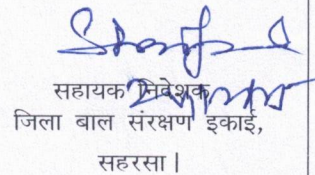 सहायक निदेशक,
जिला बाल संरक्षण इकाई,
सहरसा |